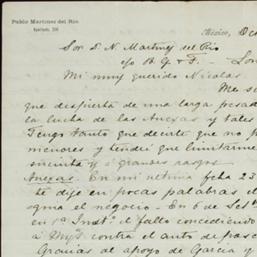 Pablo Martinez del Rio
Mexico, Oc
Sor D. N. Martinez del Rio
c/o H. G. & F. - Lon
Mi muy querido Nicolas
Me si
que despierta de una larga pesad
la lucha de las Anexas y tales
Tengo tanto que decirte que no p
menores y tendré que limitarme
sucinta y á grandes rasgos
Anexas. En mi ultima fcha 23
te dije en pocas palabras el
el negocio. En 6 de Set
en 1a Inst.a el fallo concediendo
á contra el auto de
Gracias al apoyo de Garcia y